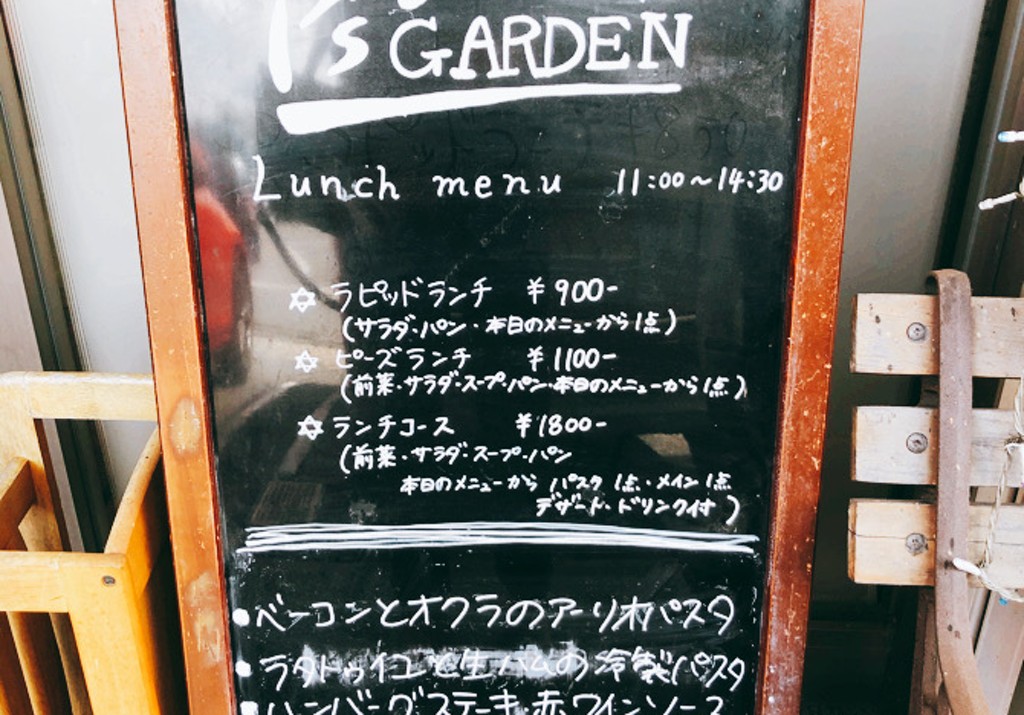 P's GARDEN
Lunch menu 11:00～14:30
ラピッドランチ ¥900-
(サラダ・パン・本日のメニューから1点)
ピーズランチ ¥1100-
(前菜・サラダ・スープ・パン・本日のメニューから1点)
ランチコース ¥1800-
(前菜・サラダ・スープ・パン
本日のメニューから パスタ 1点・メイン1点
デザート・ドリンク付)
・ベーコンとオクラのアーリオパスタ
・ラタトゥイユと生ハムの冷製パスタ
・ハンバーグステーキ・赤ワインソース